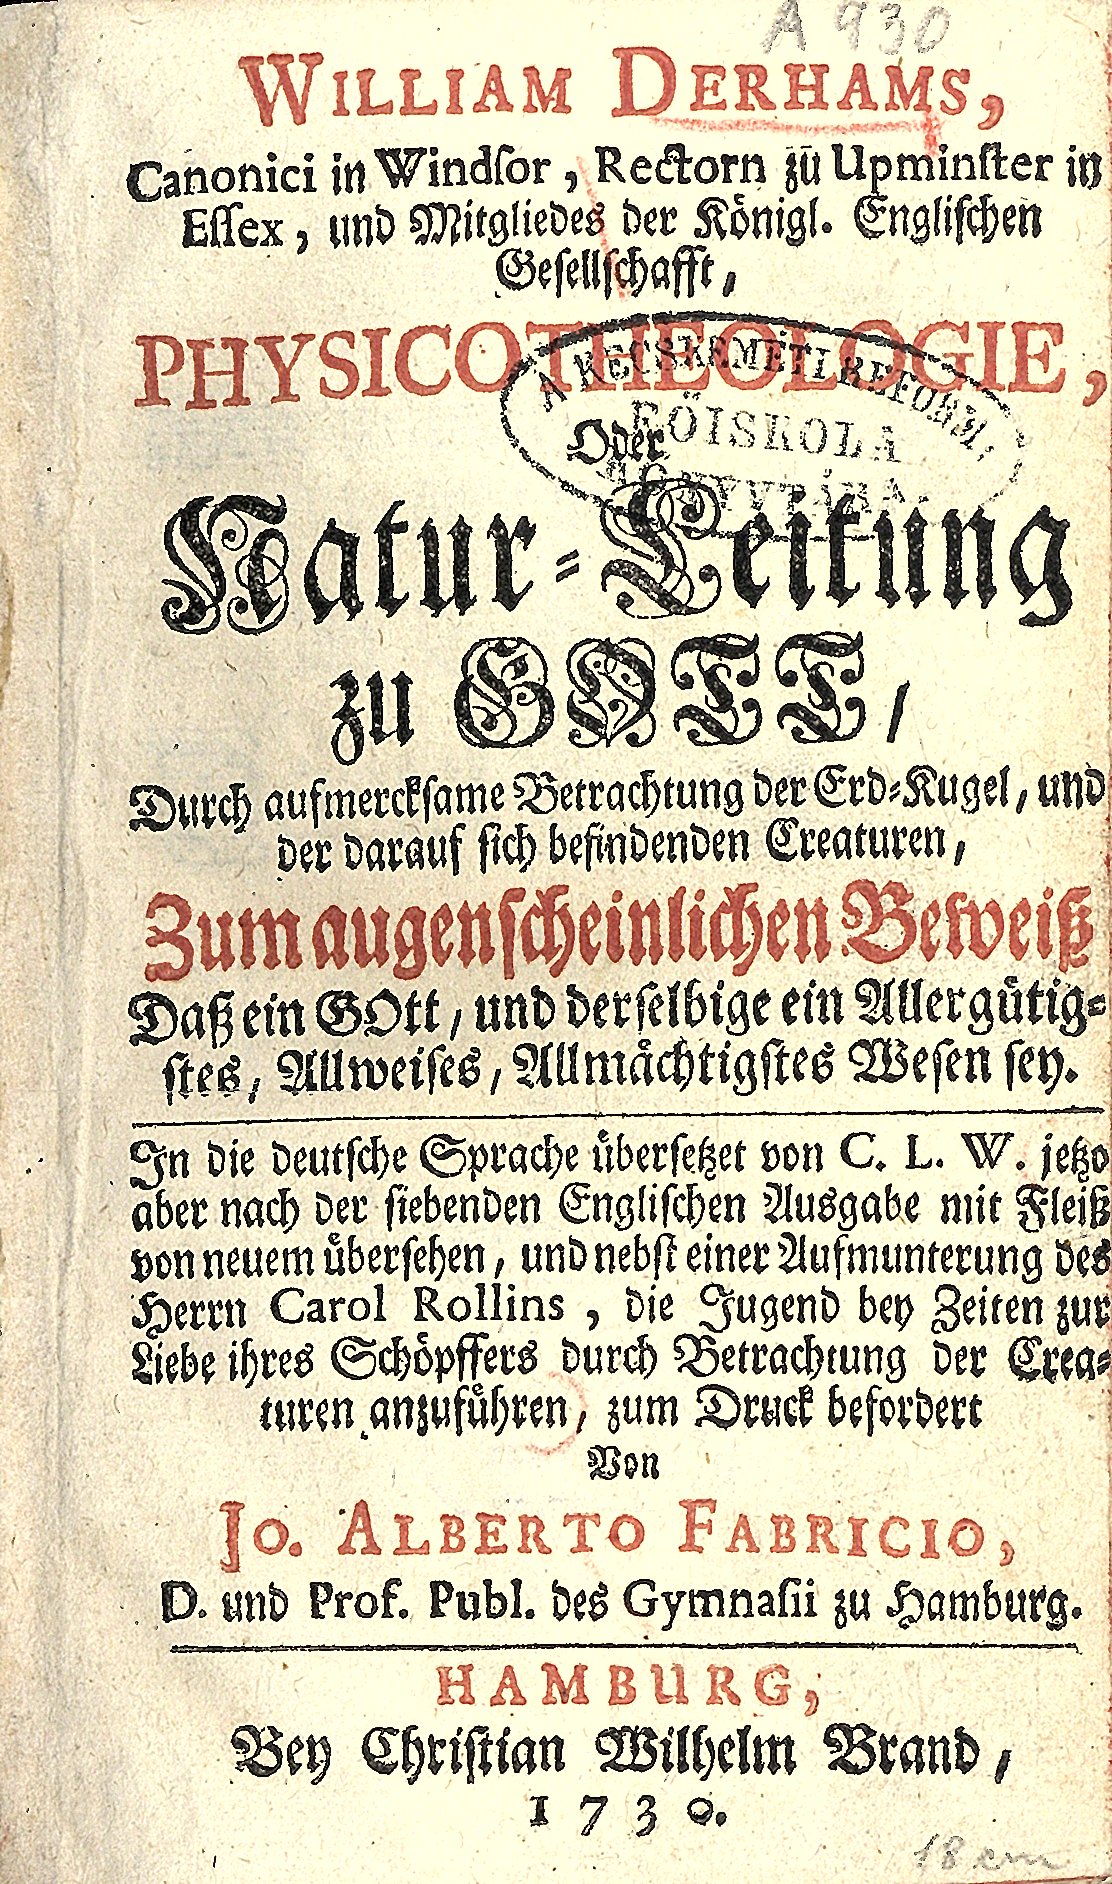 A 930
WILLIAM DERHAMS,
Canonici in Windſor, Rectorn zū Upminſter in
Eſſex, und Mitgliedes der Königl. Engliſchen
Geſellſchafft,
PHYSICOTHEOLOGIE,
A KECSKEMÉTI REFORM.
FŐISKOLA
KÖNYVTÁRA.
Oder
Natur-Leitung
zu GOTT,
Durch aufmerckſame Betrachtung der Erd-Kugel, und
der darauf ſich befindenden Creaturen,
Zum augenſcheinlichen Beweiß
Daß ein GOtt, und derſelbige ein Allergütig-
ſtes, Allweiſes, Allmächtigſtes Weſen ſey.
In die deutſche Sprache überſetzet von C. L. W. jetzo
aber nach der ſiebenden Engliſchen Ausgabe mit Fleiß
von neuem überſehen, und nebſt einer Aufmunterung des
Herrn Carol Rollins, die Jugend bey Zeiten zur
Liebe ihres Schöpffers durch Betrachtung der Crea-
turen anzuführen, zum Druck befordert
Von
JO. ALBERTO FABRICIO,
D. und Prof. Publ. des Gymnaſii zu Hamburg.
HAMBURG,
Bey Chriſtian Wilhelm Brand,
1730.
18 cm